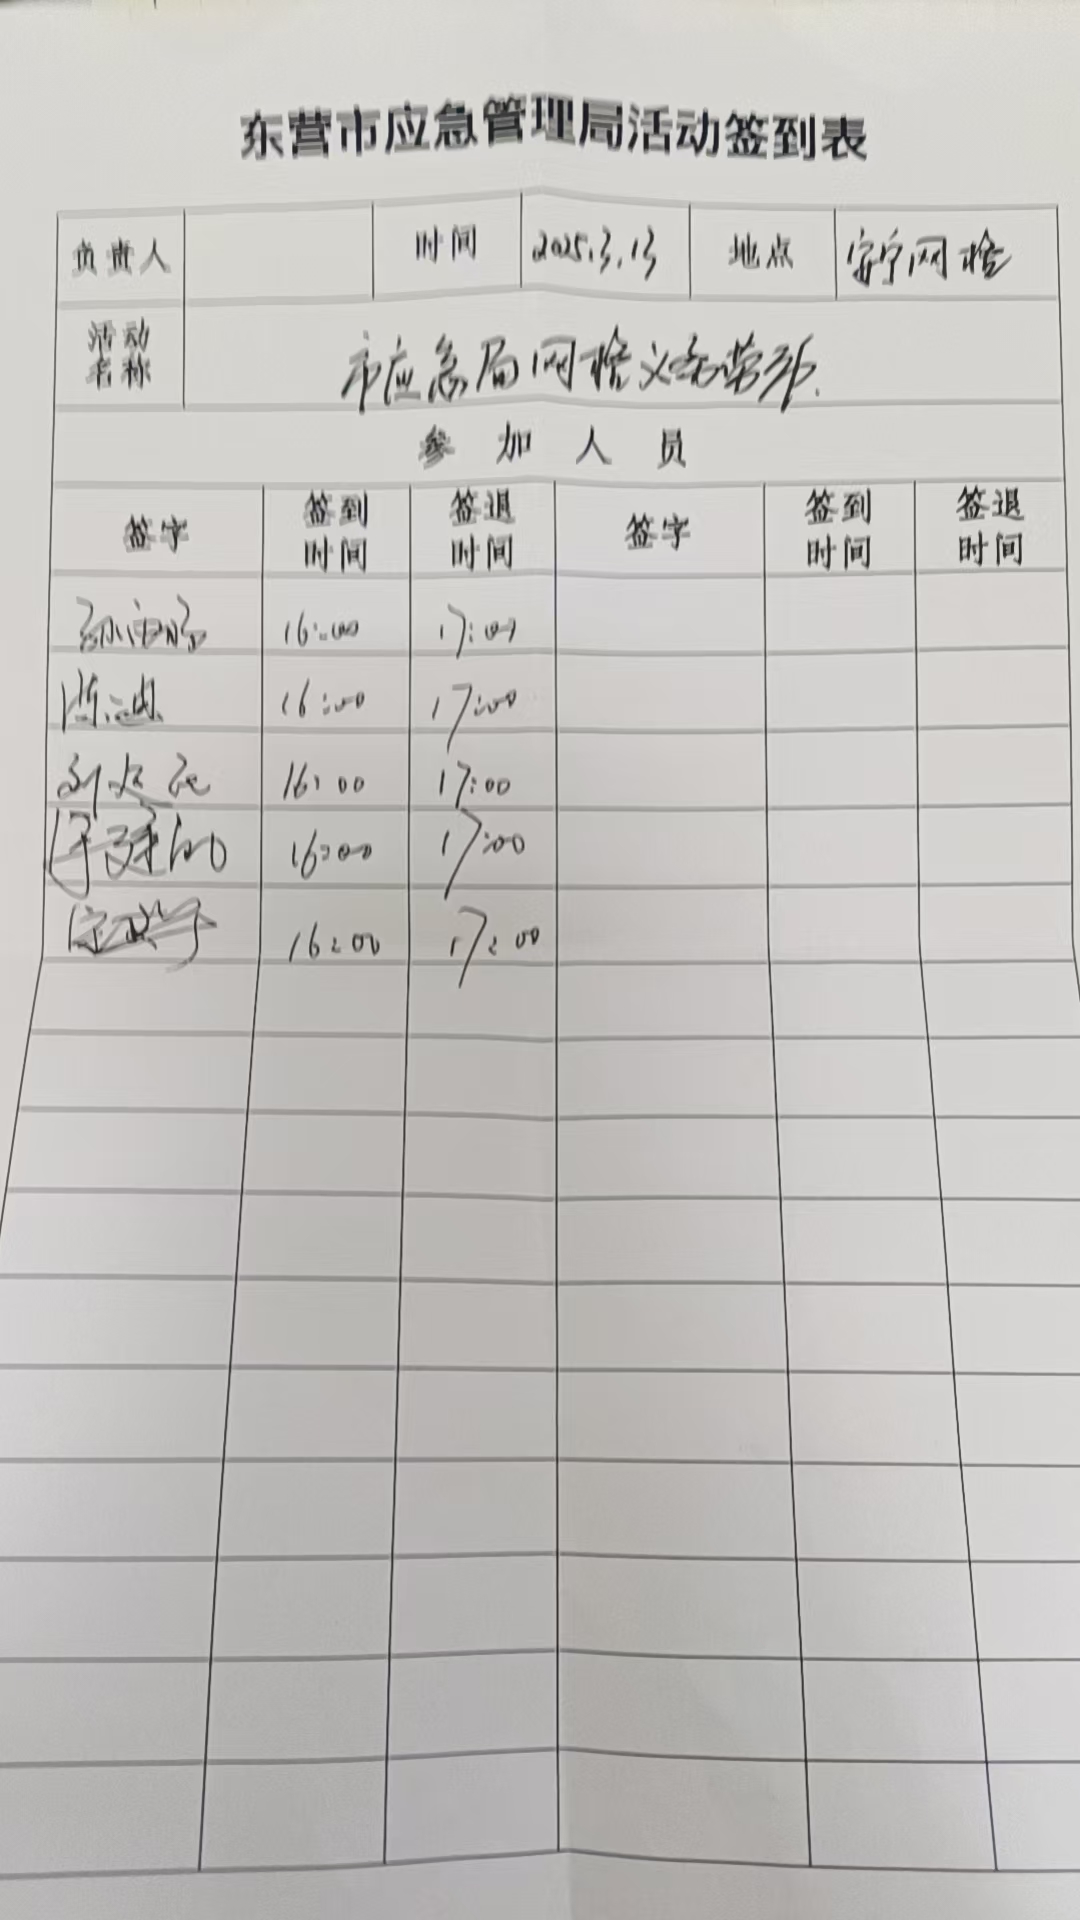 东营市应急管理局活动签到表
负责人 时间 2025.3.13 地点 安宁网格
活动名称 市应急局网格义务劳动.
参加人员
签字 签到时间 签退时间 签字 签到时间 签退时间
16:00 17:00
陈 16:00 17:00
刘 16:00 17:00
16:00 17:00
16:00 17:00